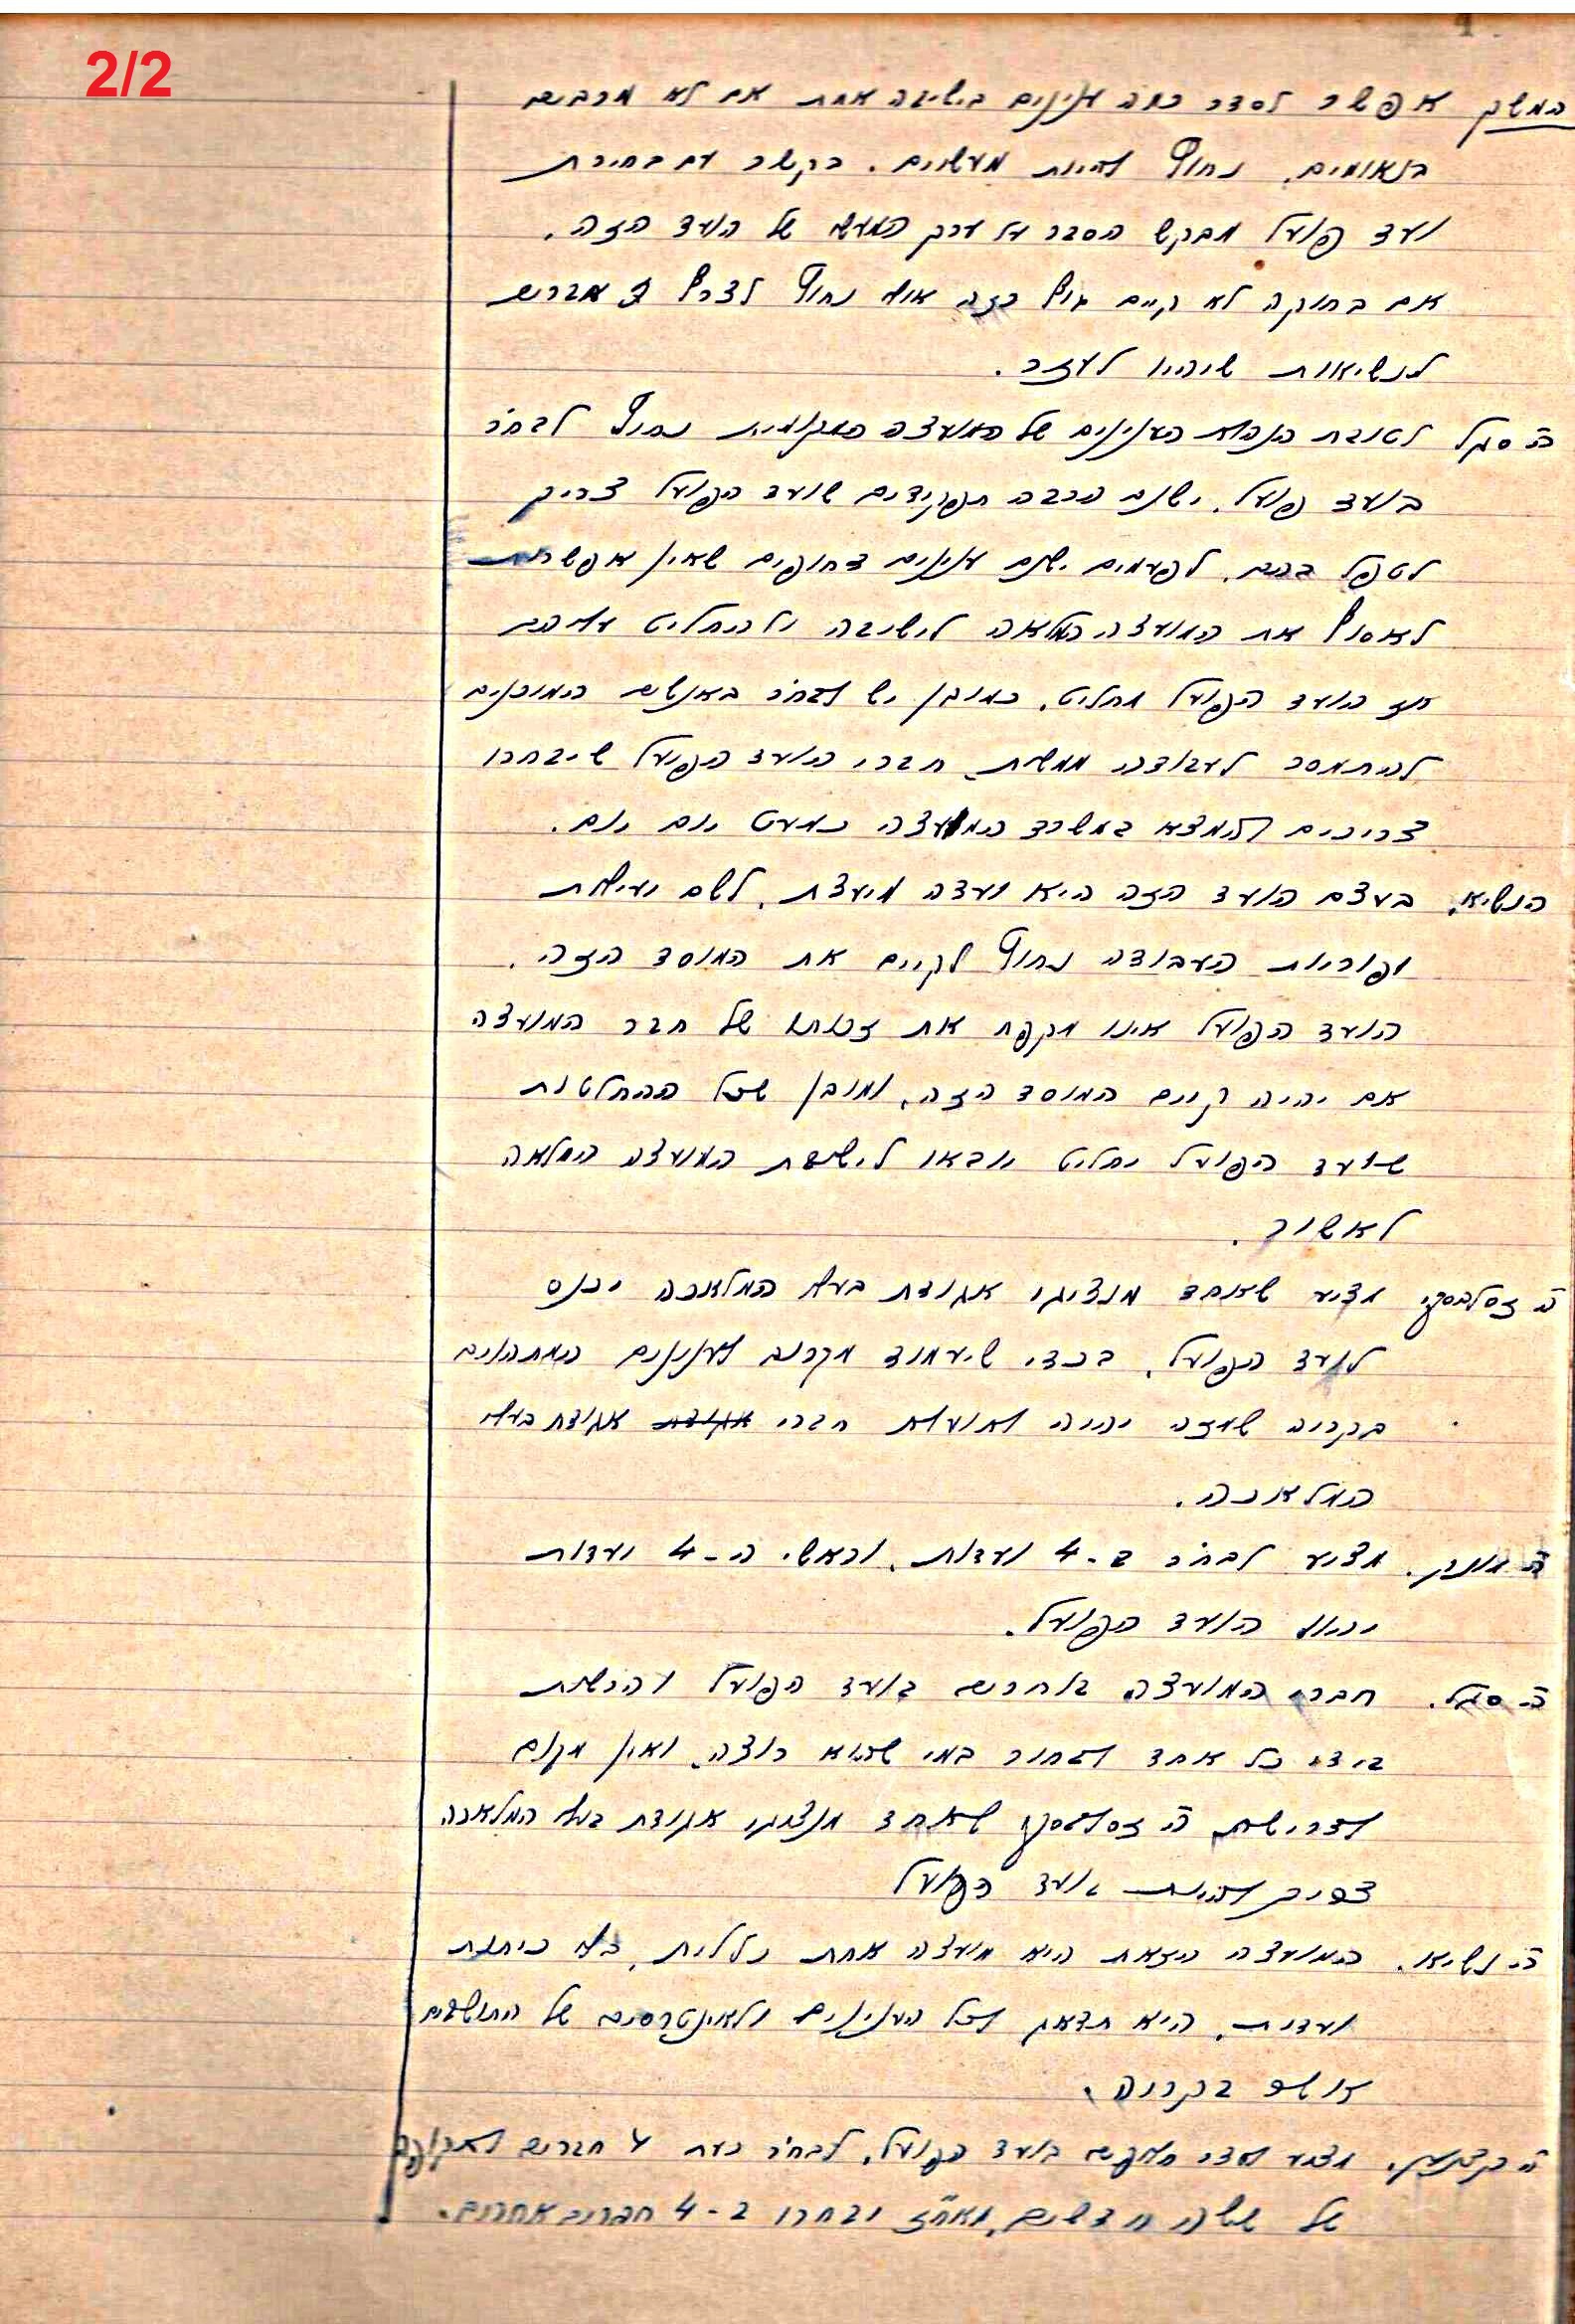 2/2
המשך אפשר לסדר כמה ענינים בישיבה אחת אם לא מרבים
בנאומים. נחוץ להיות מעשיים. בקשר עם בחירת
ועד פועל מבקש הסבר על ערך המעשי של הועד הזה.
אם בחוקה לא קיים גוף כזה אולי נחוץ לצרף 2 חברים
לנשיאות שיהיו לעזר.
ה' סגל לטובת הענינים של המועצה המקומית נחוץ לבחור
בועד פועל. ישנם הרבה תפקידים שועד הפועל צריך
לטפל בהם. לפעמים ישנם ענינים דחופים שאין אפשרות
לאסוף את המועצה המלאה לישיבה ולהחליט עליהם
אז הועד הפועל מחליט. כמובן יש לבחור באנשים המוכנים
להתמסר לעבודה ממשית. חברי הועד הפועל שיבחרו
צריכים להמצא במשרד המועצה כמעט יום יום.
הנשיא. בעצם הועד הזה היא ועדה מיעצת. לשם יעילות
ופוריות העבודה נחוץ לקיים את המוסד הזה.
הועד הפועל אינו מקפח את זכותו של חבר המועצה
אם יהיה קיים המוסד הזה. ומובן שכל ההחלטות
שועד הפועל יחליט יובאו לישיבת המועצה המלאה
לאשור.
ה' זסלבסקי מציע שאחד מנציגי אגודת בעלי המלאכה יכנס
לועד הפועל. בכדי שיעמוד מקרוב לענינים המתהוים
בקריה שמזה יהיה תועלת חברי אגודת אגודת בעלי
המלאכה.
מציע לבחור ב-4 ועדות. וראשי ה-4 ועדות
יהוו הועד הפועל.
ה' סגל. חברי המועצה בוחרים בועד הפועל והרשות
בידי כל אחד לבחור במי שהוא רוצה. ואין מקום
לדרישת ה' זסלבסקי שאחד מנציגי אגודת בעלי המלאכה
צריך להיות בועד הפועל
ה' נשיא. המועצה הזאת היא מועצה אחת כללית. בלי כיתות
ועדות. היא תדאג לכל הענינים ולאינטרסים של התושבים
בקריה.
מציע חברים בועד הפועל. לבחור כעת 4 חברים לתקופה
של ששה חדשים. ואח"כ יבחרו ב-4 חברים אחרים.